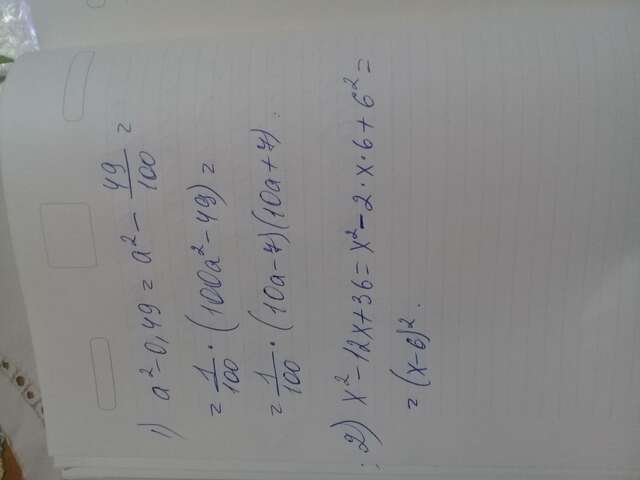 1) a² - 0,49 = a² - 49/100 =
= 1/100 · (100a² - 49) =
= 1/100 · (10a - 7)(10a + 7).
2) x² - 12x + 36 = x² - 2 · x · 6 + 6² =
= (x - 6)².